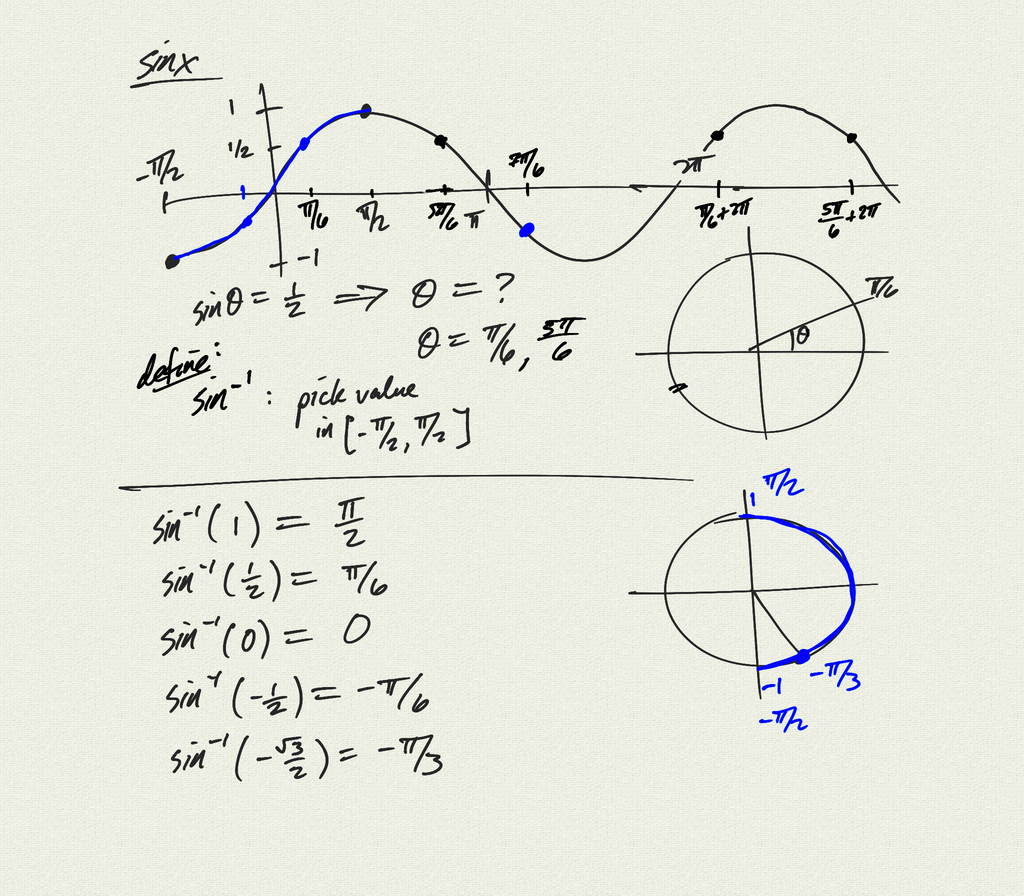 sinx
1
1/2
-π/2
π/6
π/2
5π/6
π
7π/6
2π
π/6+2π
5π/6+2π
-1
sinθ = 1/2 ⟹ θ = ?
θ = π/6, 5π/6
define:
sin⁻¹ : pick value
in [-π/2, π/2]
π/6
θ
sin⁻¹(1) = π/2
sin⁻¹(1/2) = π/6
sin⁻¹(0) = 0
sin⁻¹(-1/2) = -π/6
sin⁻¹(-√3/2) = -π/3
1 π/2
-π/3
-1
-π/2